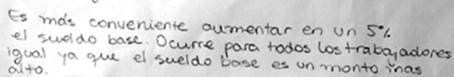 Es más conveniente aumentar en un 5%
el sueldo base. Ocurre para todos los trabajadores
igual ya que el sueldo base es un monto mas
alto.